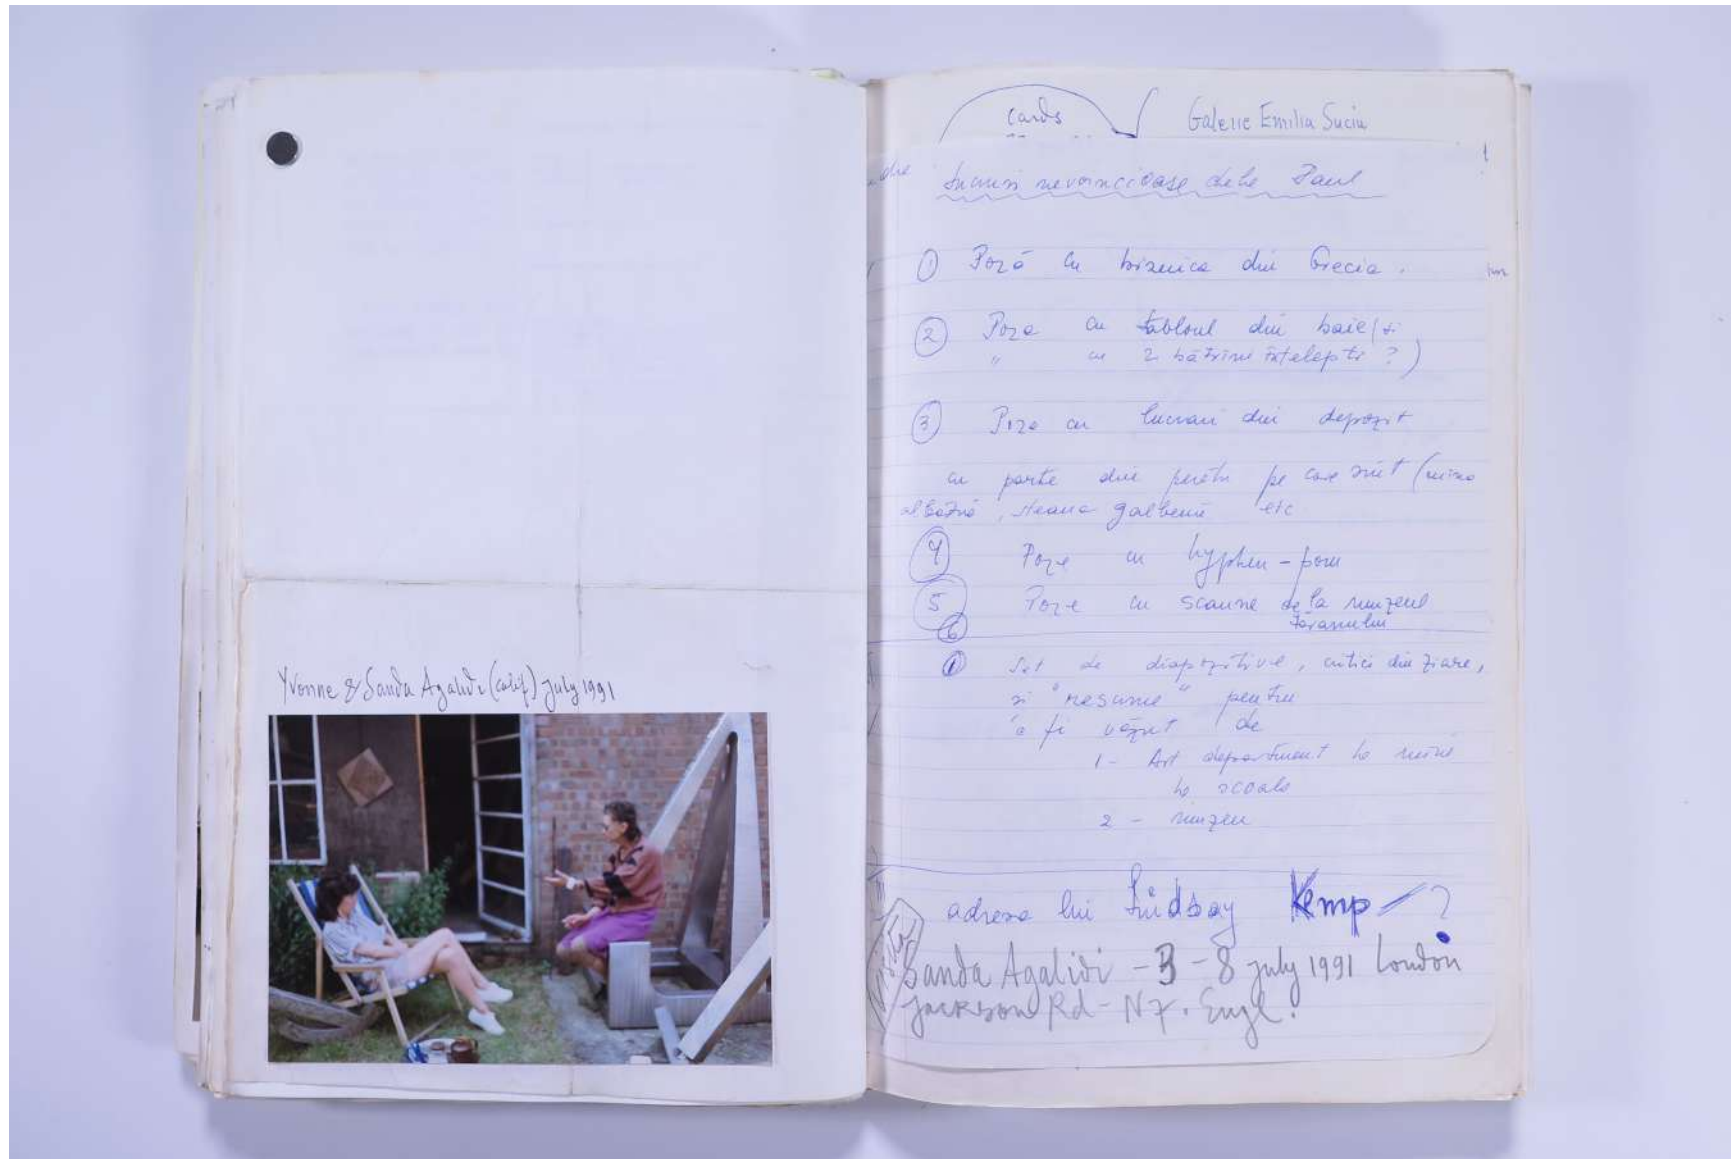 Yvonne & Sanda Agalidi (calif) July 1991
cards
Galerie Emilia Suciu
1
lucruri nevoincioase dela Paul
① Poză cu biserica din Grecia.
② Poza cu tabloul din baie (si
" cu 2 bătrini intelepti ?)
③ Poze cu lucrari din depozit
cu parte din peretii pe care sint (mina
albastră, steaua galbenă etc
④ Poze cu hyphen-
⑤ Poze cu scaune de la muzeul
taranului
⑥
① Set de diapozitive, critici din ziare,
si "resume" pentru
a fi văzut de
1 - Art department la mine
la scoala
2 - muzeu
adresa lui Lindsay Kemp - ?
Sanda Agalidi - 3 - 8 july 1991 London
Jackson Rd - N7. Engl.